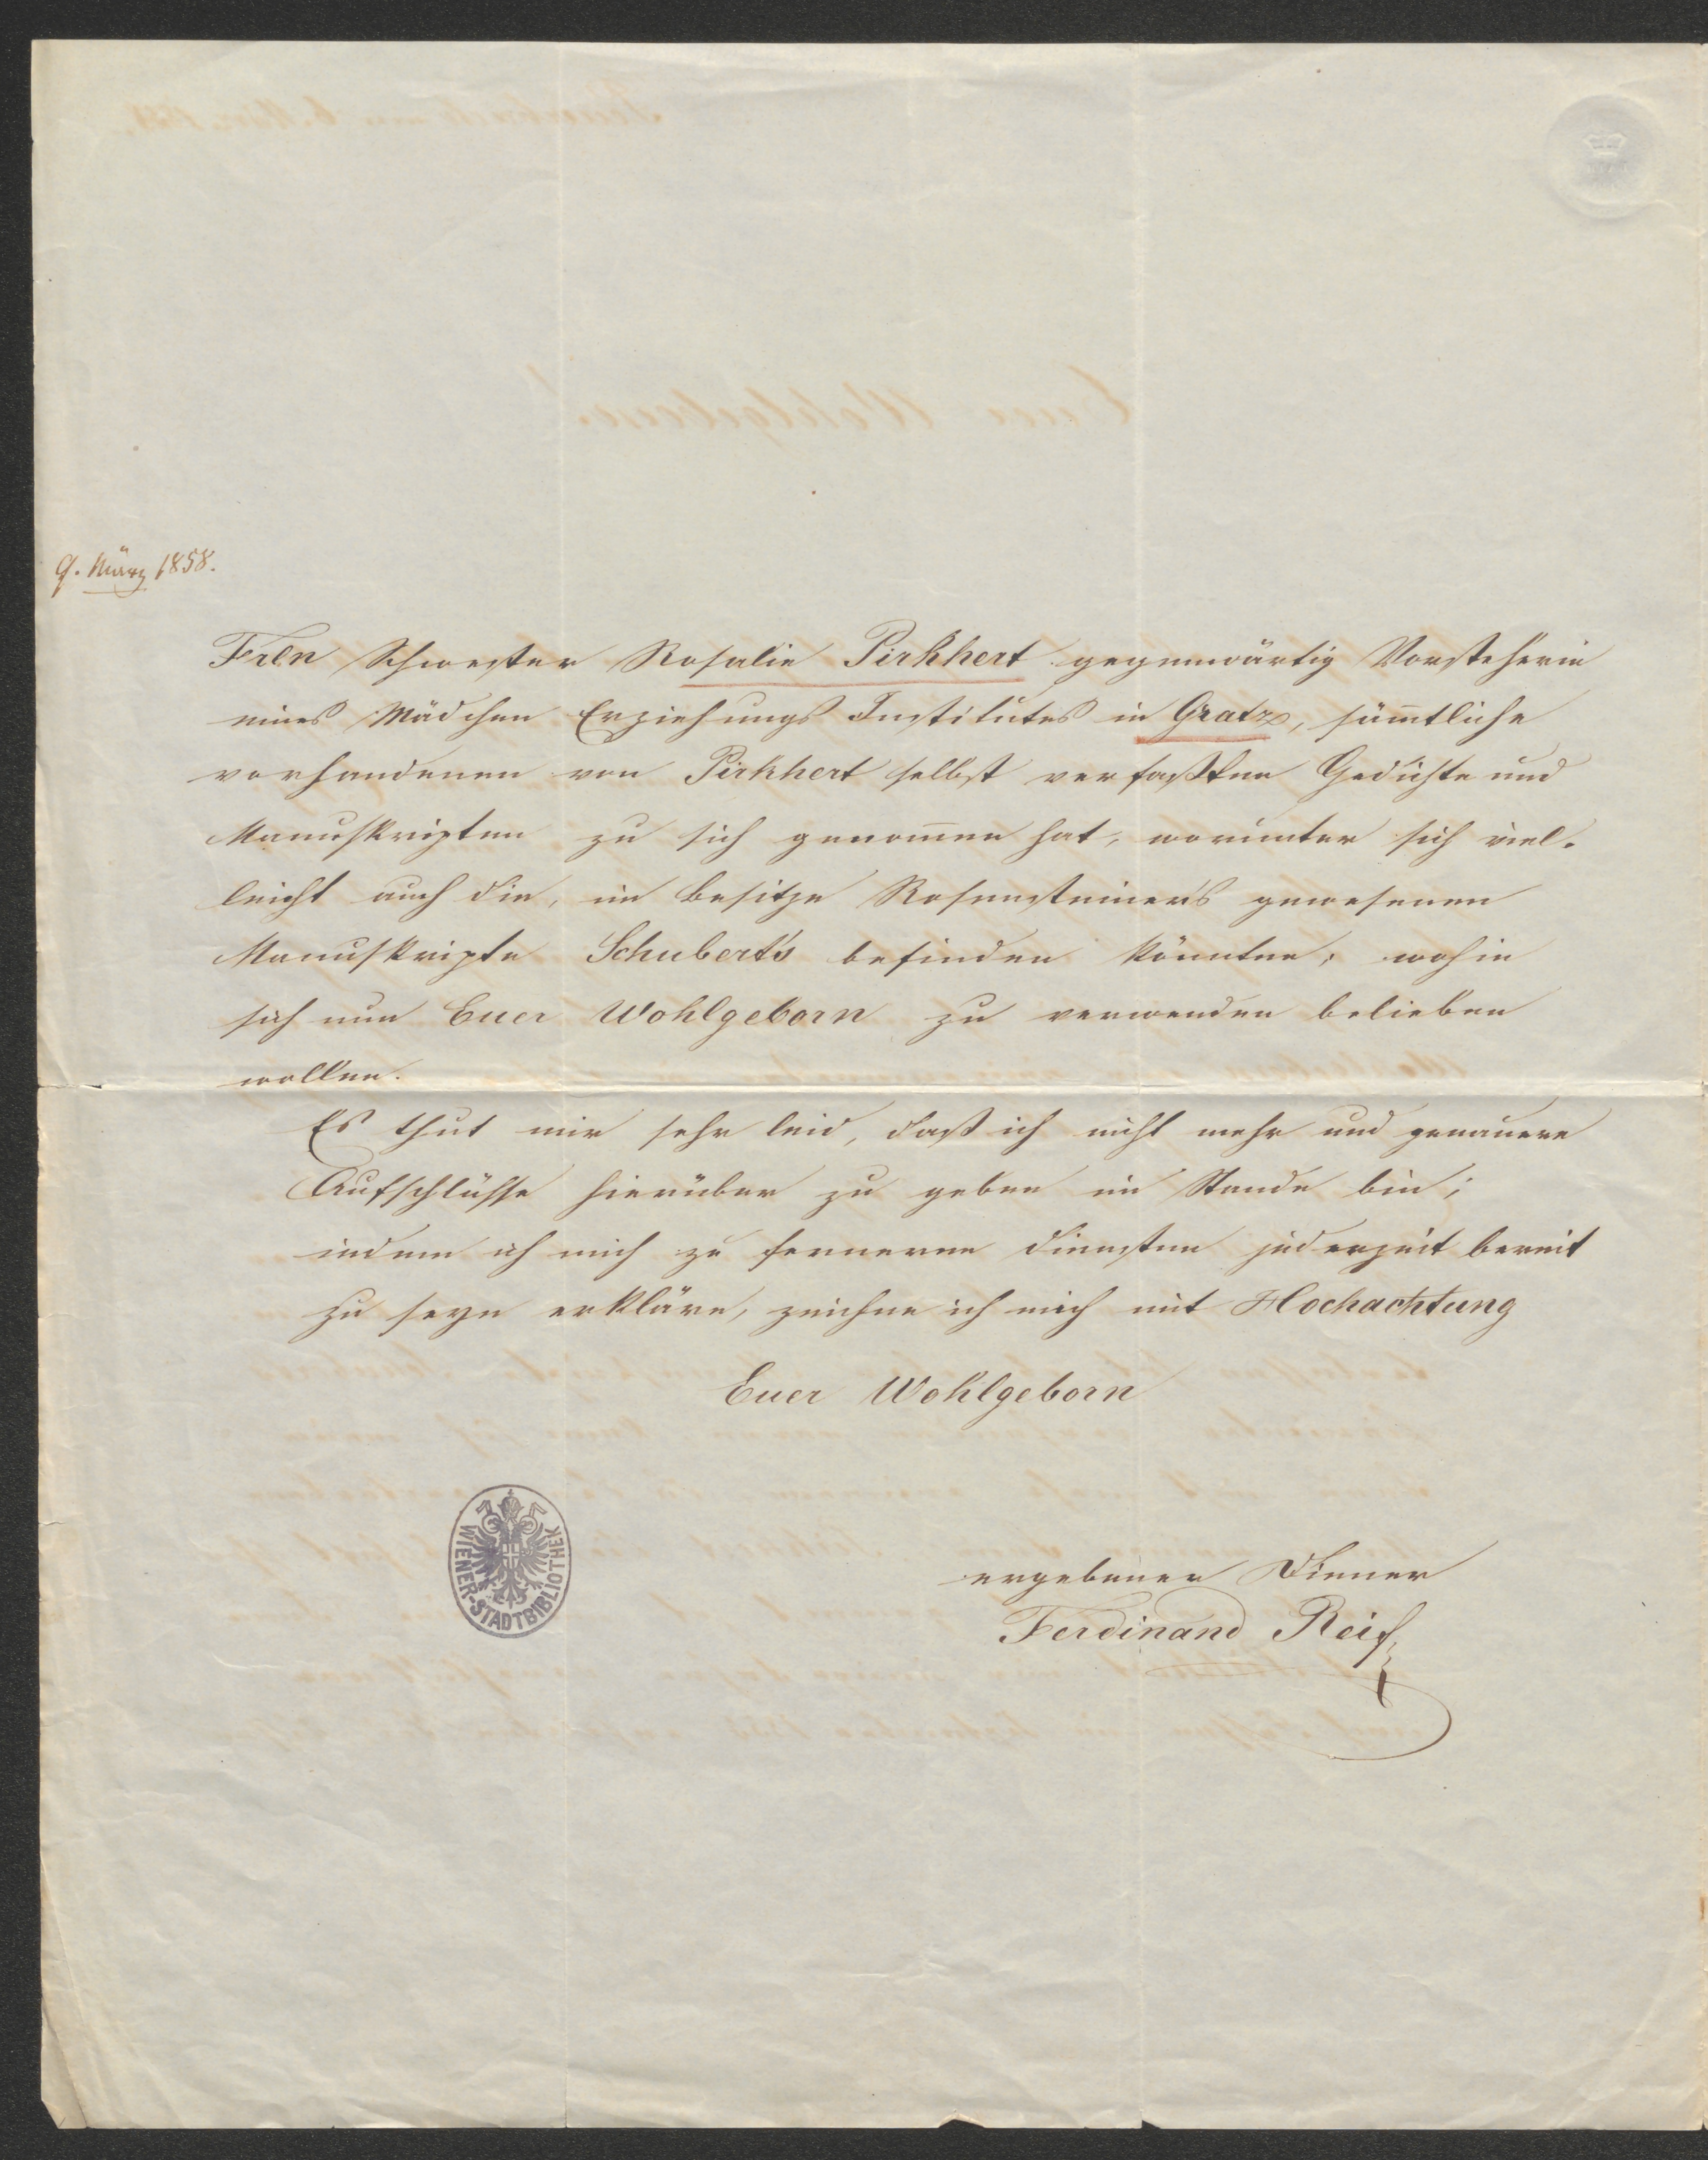 9. März 1858.
Frln Schwester Rosalie Pirkhert gegenwärtig Vorsteherin
eines Mädchen Erziehungs Institutes in Gratz, sämtliche
vorhandenen von Pirkhert selbst verfaßten Gedichte und
Manuskripten zu sich genomen hat, worunter sich viel-
leicht auch die, im Besitze Rosensteiner's gewesenen
Manuskripte Schubert's befinden könnten; wohin
sich nun Euer Wohlgeborn zu verwenden belieben
wollen.
Es thut mir sehr leid, daß ich nicht mehr und genauere
Aufschlüsse hierüber zu geben im Stande bin;
indem ich mich zu ferneren Diensten jederzeit bereit
zu seyn erkläre, zeichne ich mich mit Hochachtung
Euer Wohlgeborn
ergebener Diener
Ferdinand Reif
WIENER-STADTBIBLIOTHEK